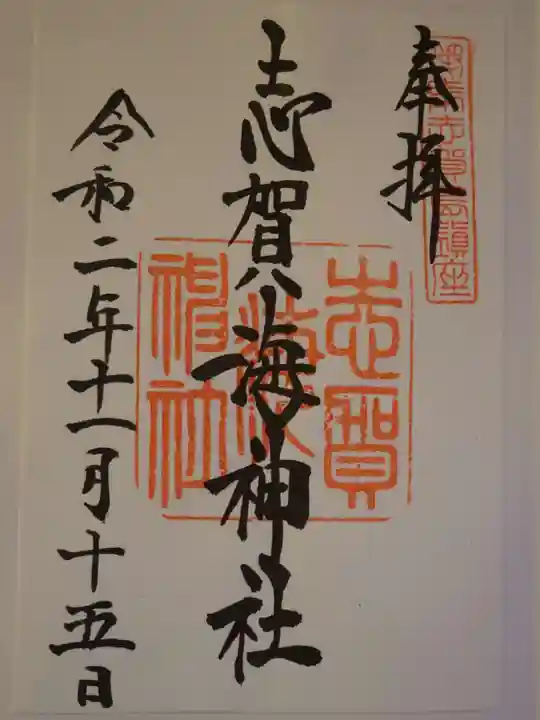 奉拝
志賀海神社
志賀海神社
令和二年十一月十五日